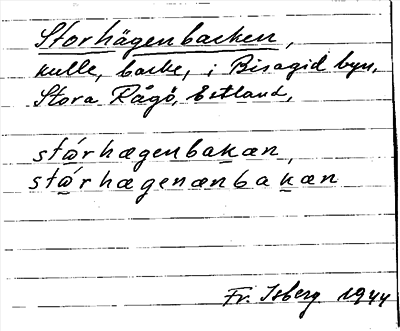 Storhägenbacken,
kulle, backe, i Bisagid byn,
Stora Rågö, Estland,
stǿrhægenbakæn,
stǿrhægenænbakæn
Fr. Isberg 1944